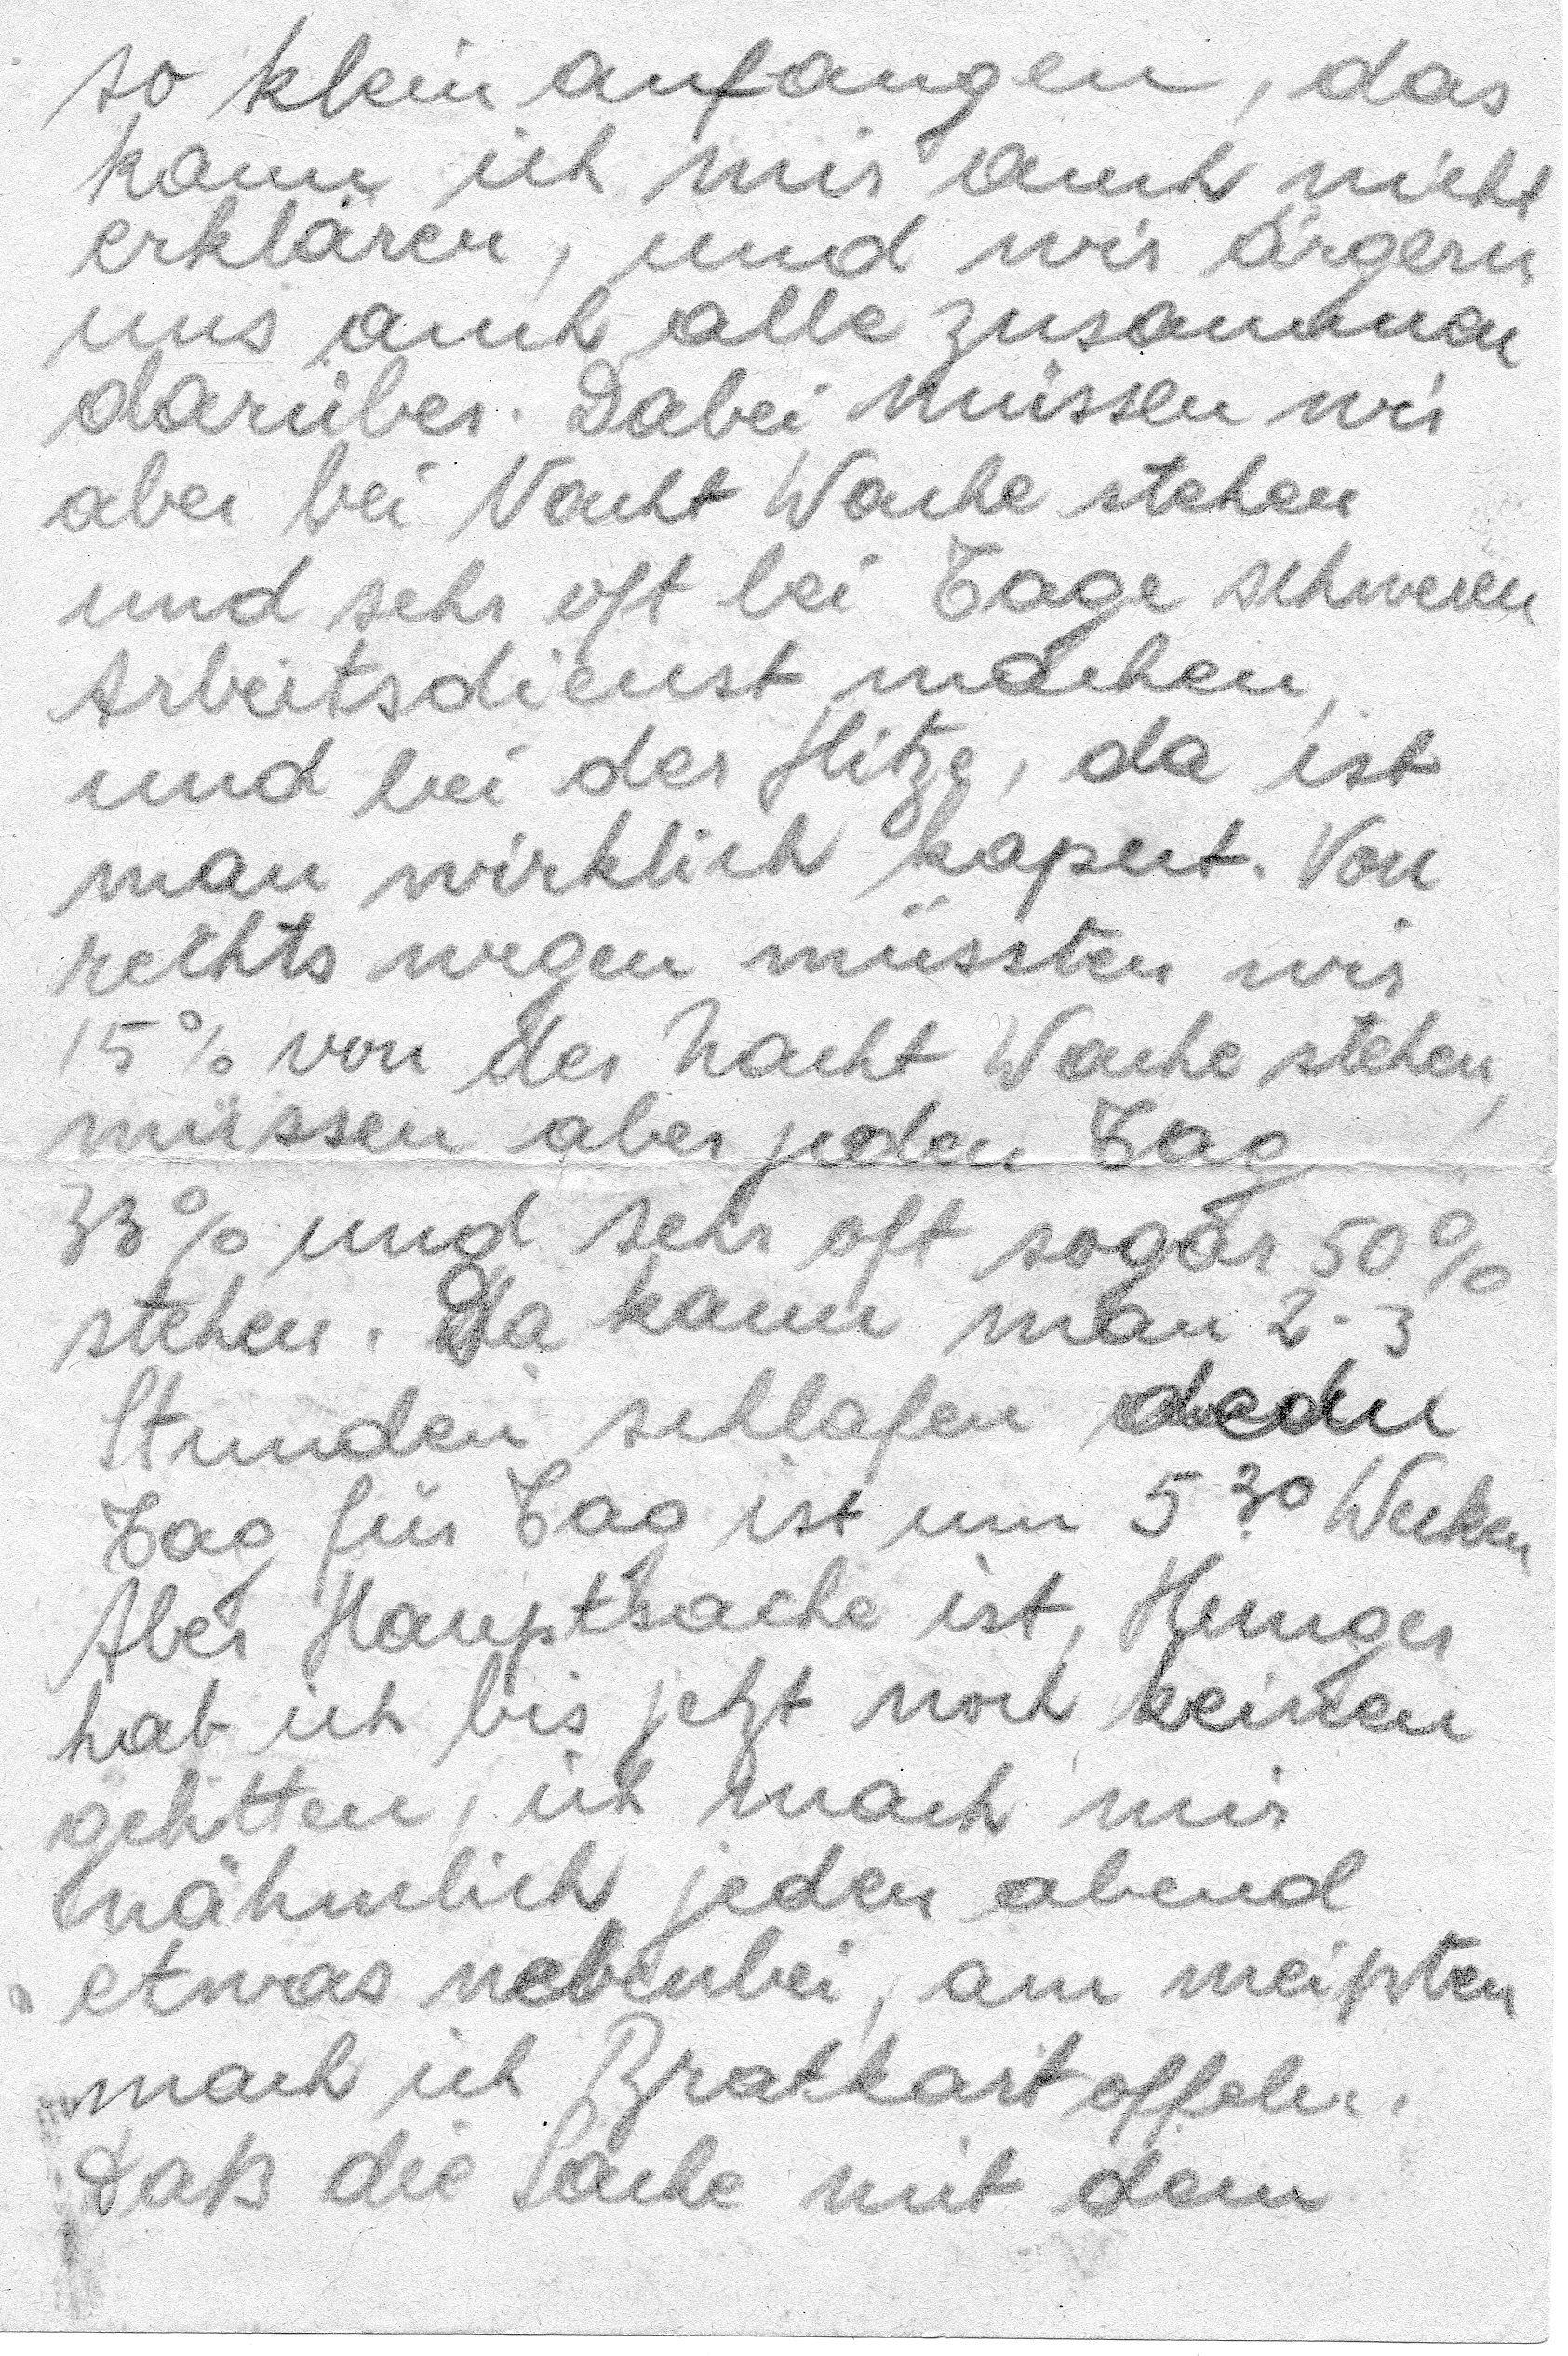 so klein anfangen, das
kann ich mir auch nicht
erklären, und wir ärgern
uns auch alle zusammen
darüber. Dabei müssen wir
aber bei Nacht Wache stehen
und sehr oft bei Tage schweren
Arbeitsdienst machen,
und bei der Hitze, da ist
man wirklich kaput. Von
rechts wegen müssten wir
15% von der Nacht Wache stehen,
müssen aber jeden Tag
33% und sehr oft sogar 50%
stehen. Da kann man 2-3
Stunden schlafen
Tag für Tag ist um 5 30 Wecken
Aber Hauptsache ist, Hunger
hab ich bis jetzt noch keinen
gelitten, ich mach mir
nähmlich jeden abend
etwas nebenbei, am meißten
mach ich Bratkartoffeln.
Daß die Sache mit dem